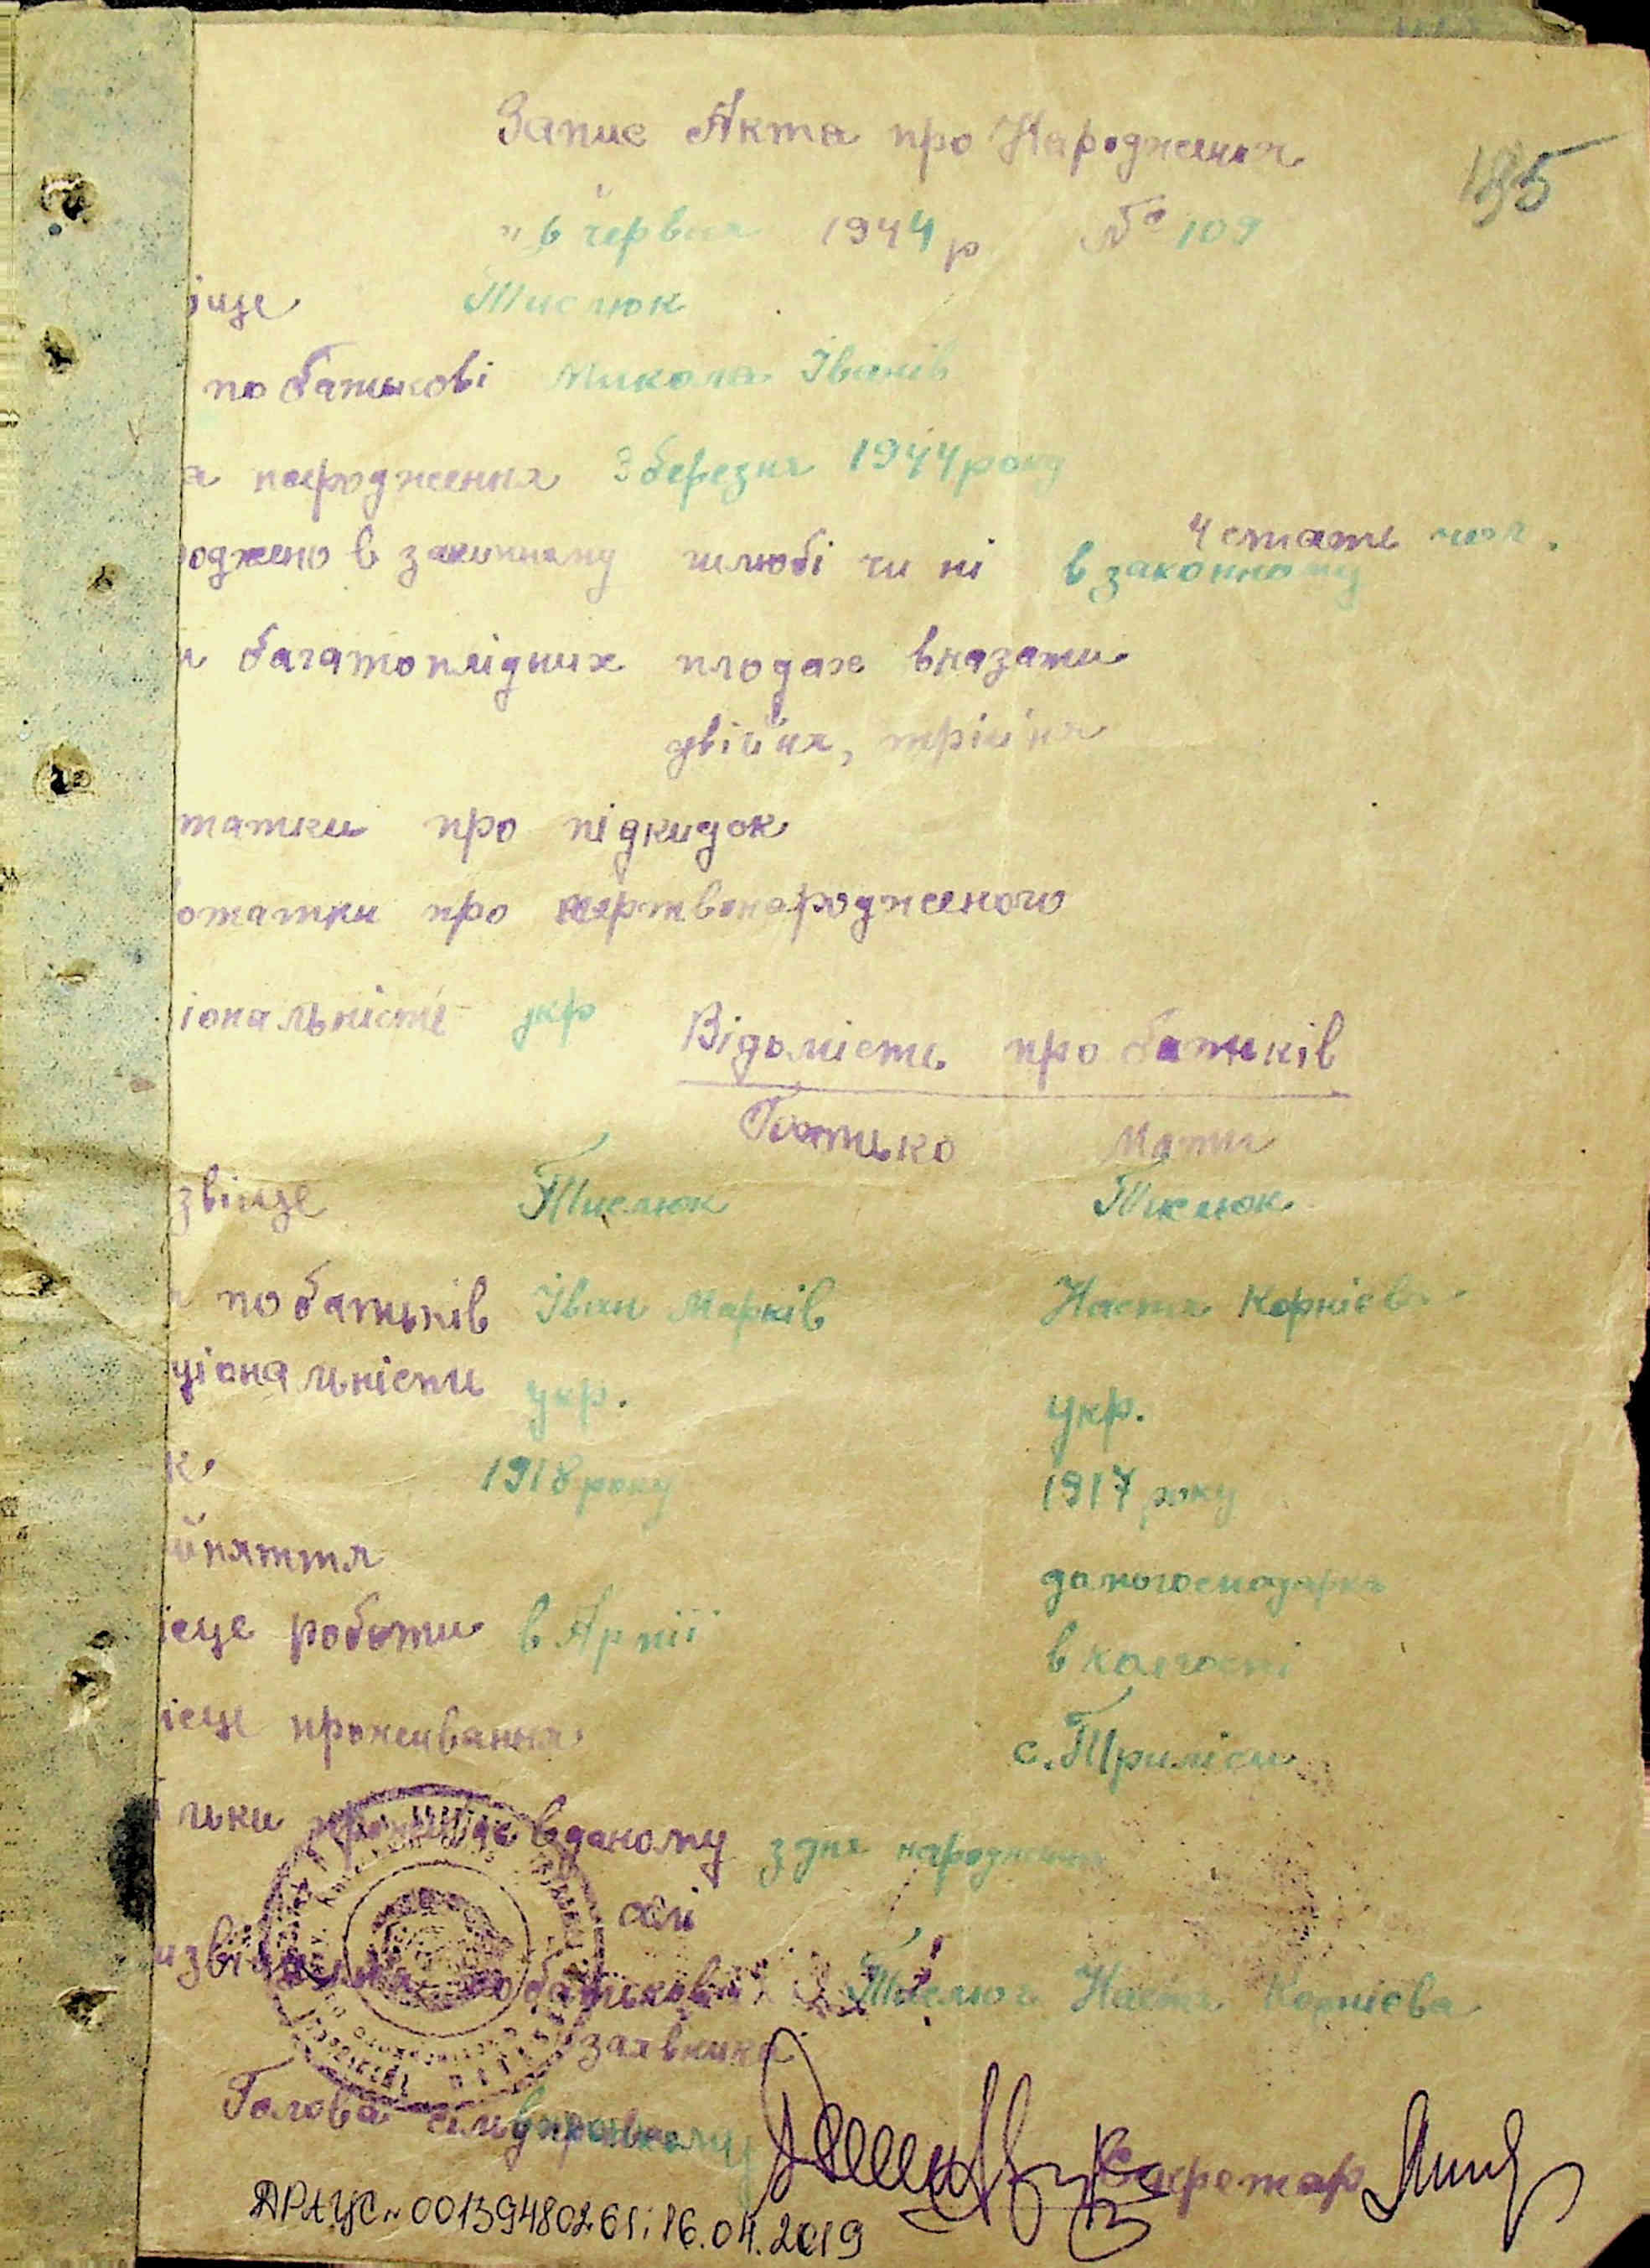 Запис Акта про Народження
185
"6 червня 1944 р № 109
іще Тислюк
по батькові Микола Іванів
а народження 3 березня 1944 року
4 стать чол.
оджено в законному шлюбі чи ні в законному
и багатоплідних плодах вказати
двійня, трійня
татки про підкидок
отатки про мертвонародженого
іональність укр
Відомість про батьків
Батько Мати
звіще Тислюк Тислюк
по батьків Іван Марків Настя Корнієва
ціональність укр. укр.
к 1918 року 1917 року
йняття домогосподарка
ісце роботи в Армії в колгоспі
ісце проживання с. Триліси
льки проживає в даному з дня народження
селі
ізвіще по батькові Тислюк Настя Корнієва
заявника
Голова Секретар
ДРАЦС № 00139480261; 16.04.2019